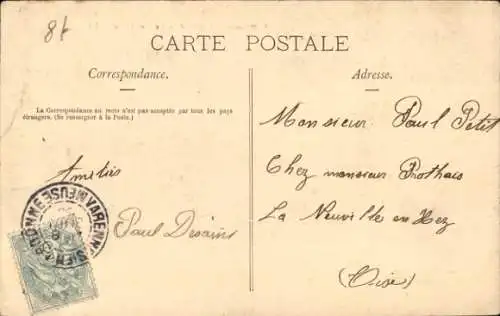 8f
CARTE POSTALE
Correspondance.
Adresse.
La Correspondance au recto n'est pas acceptée par tous les pays
étrangers. (Se renseigner à la Poste.)
Monsieur Paul Petit
Chez monsieur Prothais
La Neuville en Hez
(Oise)
Amitiés
Paul
MEUSE